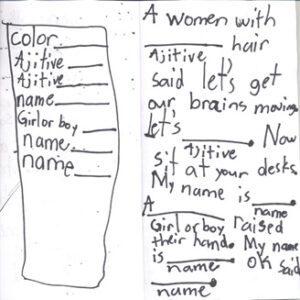 color____
Ajitive____
Ajitive____
name____
Girl or boy____
name____
name____
A women with
____ hair
Ajitive
said let's get
our brains moving.
let's ____. Now
Ajitive
sit at your desks.
My name is ____
name
A ____ raised
Girl or boy
their hand. My name
is ____ ok said
name
____.
name